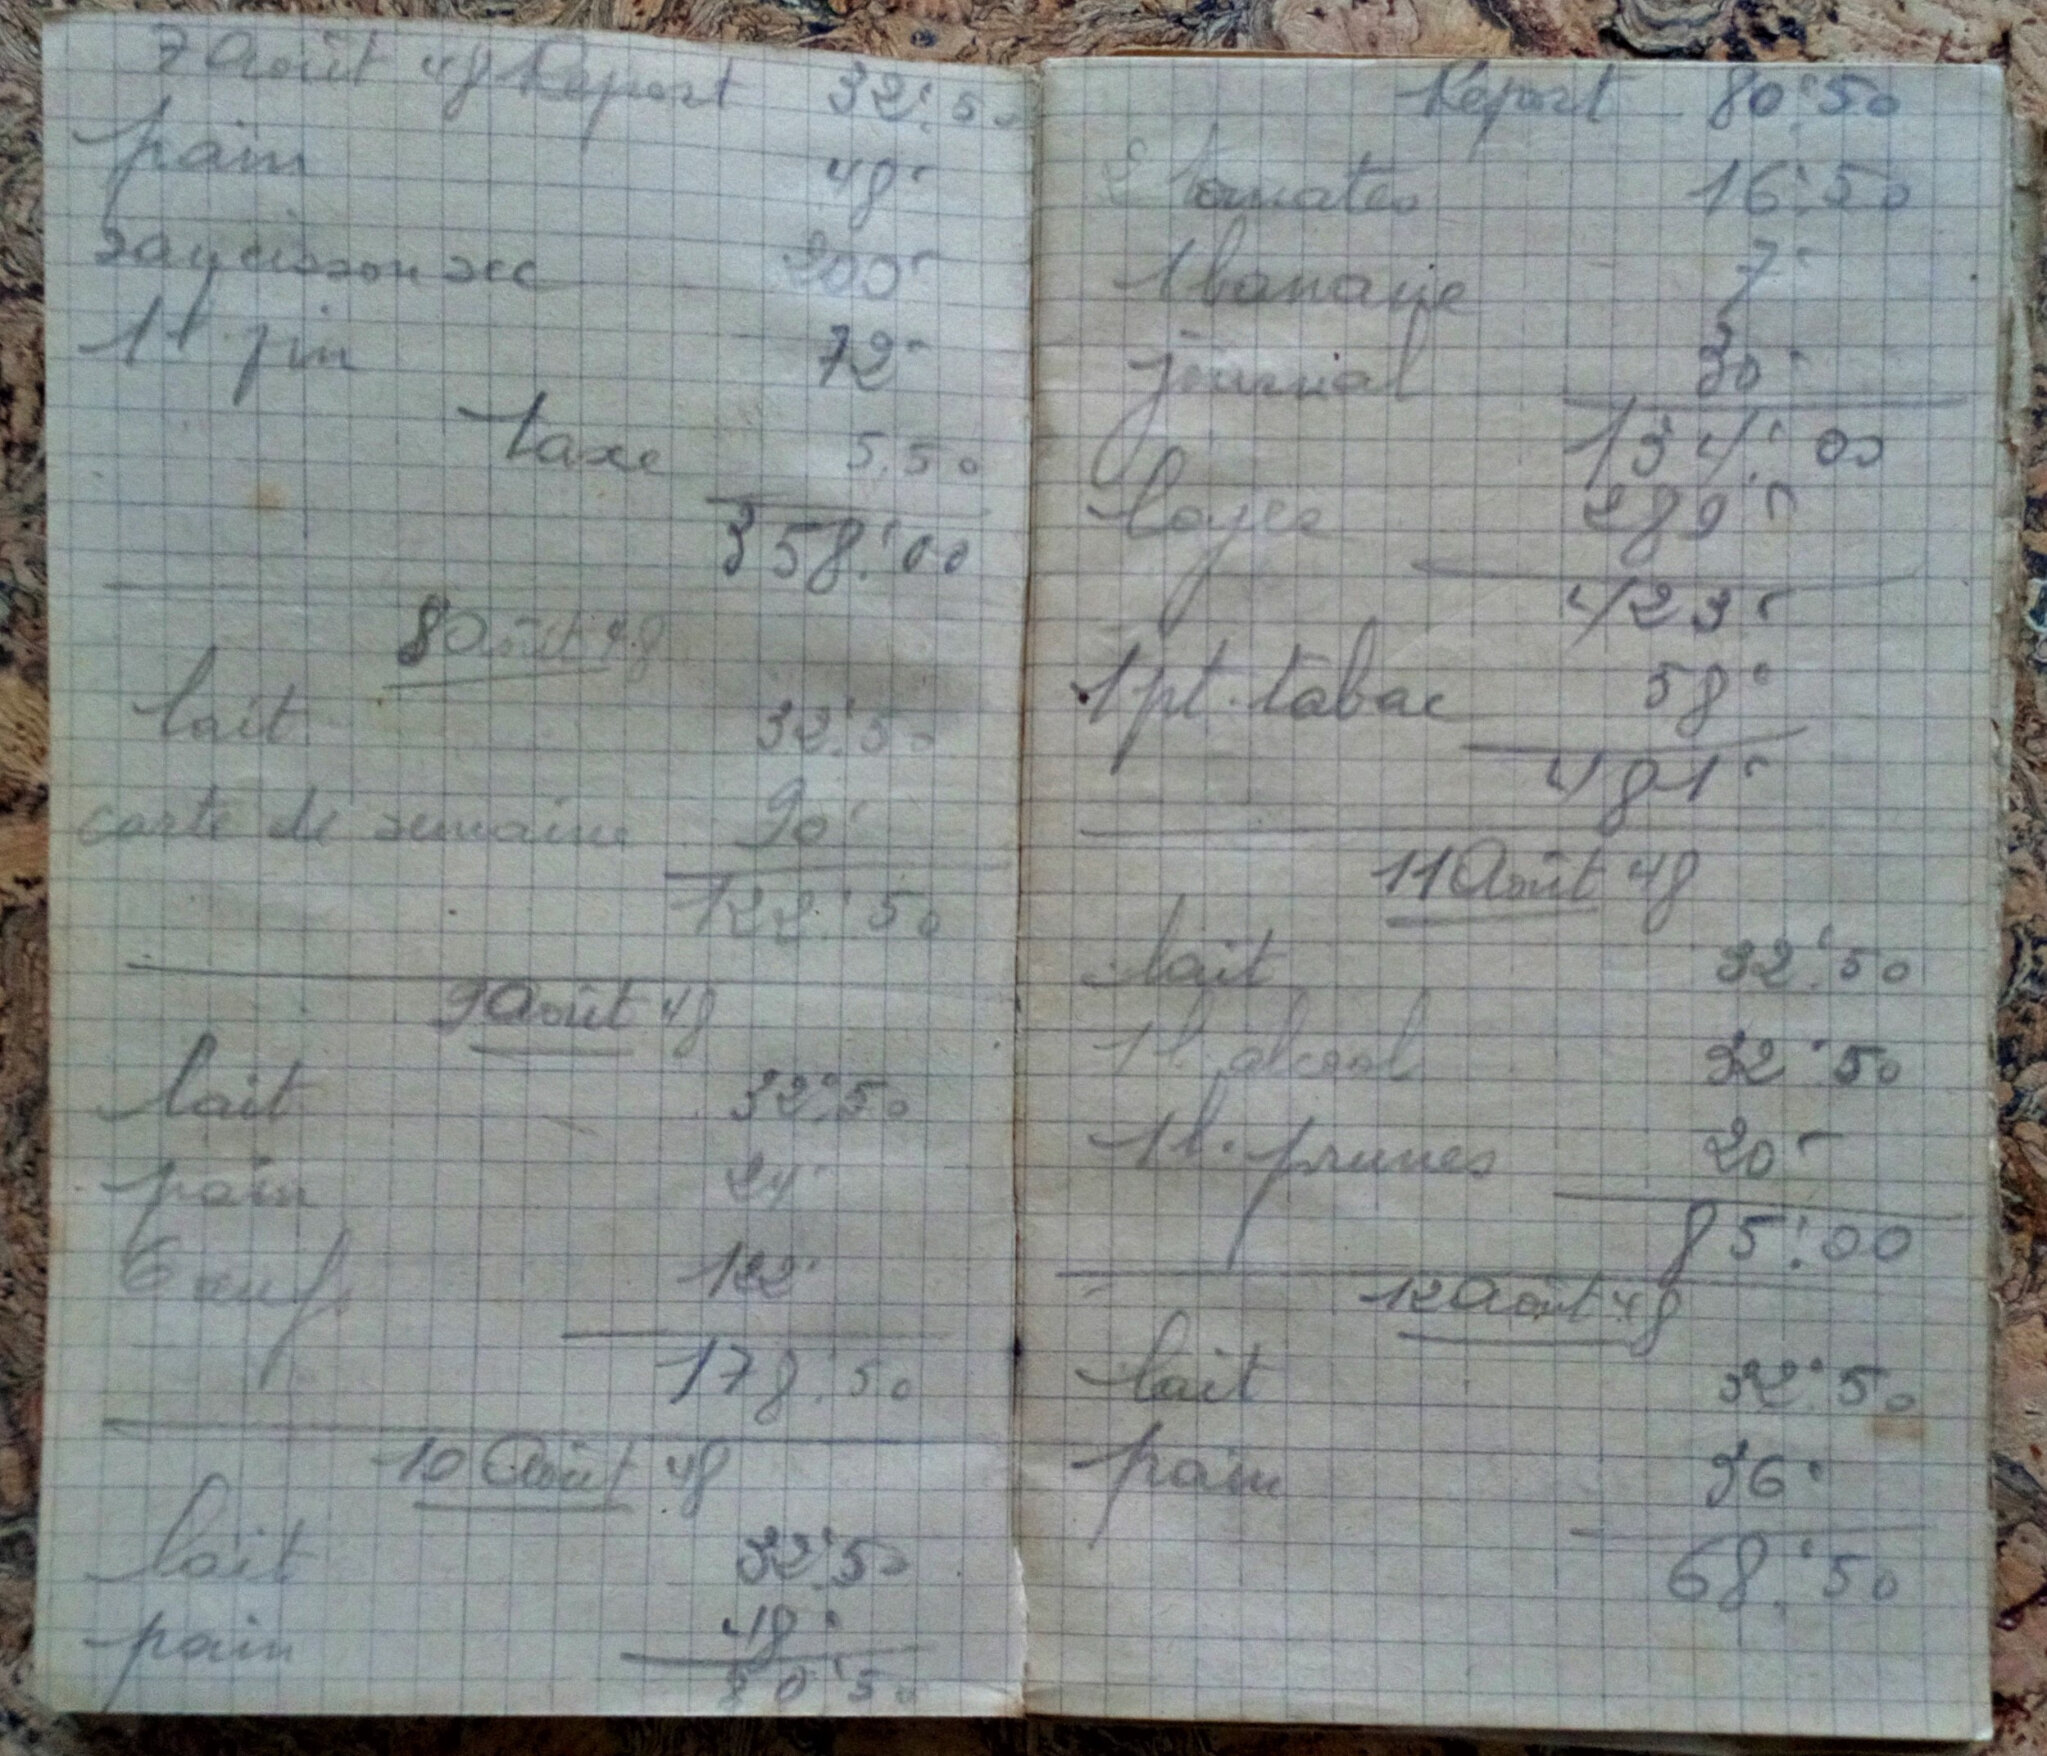 7 Août 48 Report 32.50
pain 48
saucisson sec 200
1 l. vin 72
taxe 5.50
358.00
8 Août 48
lait 32.50
carte de semaine 90
122.50
9 Août 48
lait 32.50
pain 24
6 œufs 122
178.50
10 Août 48
lait 32.50
pain 48
80.50
Report 80.50
tomates 16.50
1 banane 7
journal 30
134.00
loyer 289
423
1 pt. tabac 58
481
11 Août 48
lait 32.50
1 l. alcool 32.50
1 l. prunes 20
85.00
12 Août 48
lait 32.50
pain 36
68.50